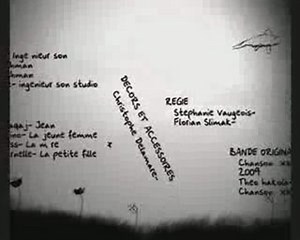 Inge nieur son
hman
hman
e- ingenieur son studio
agaj- Jean
ino- La jeune femme
ss- La m re
rnelle- La petite fille
DECORS ET ACCESSOIRES
Christophe Delamare-
REGIE
Stephanie Vaugeois-
Florian Slimak-
BANDE ORIGINA
Chanson
2009
Theo hakola-
Chanson